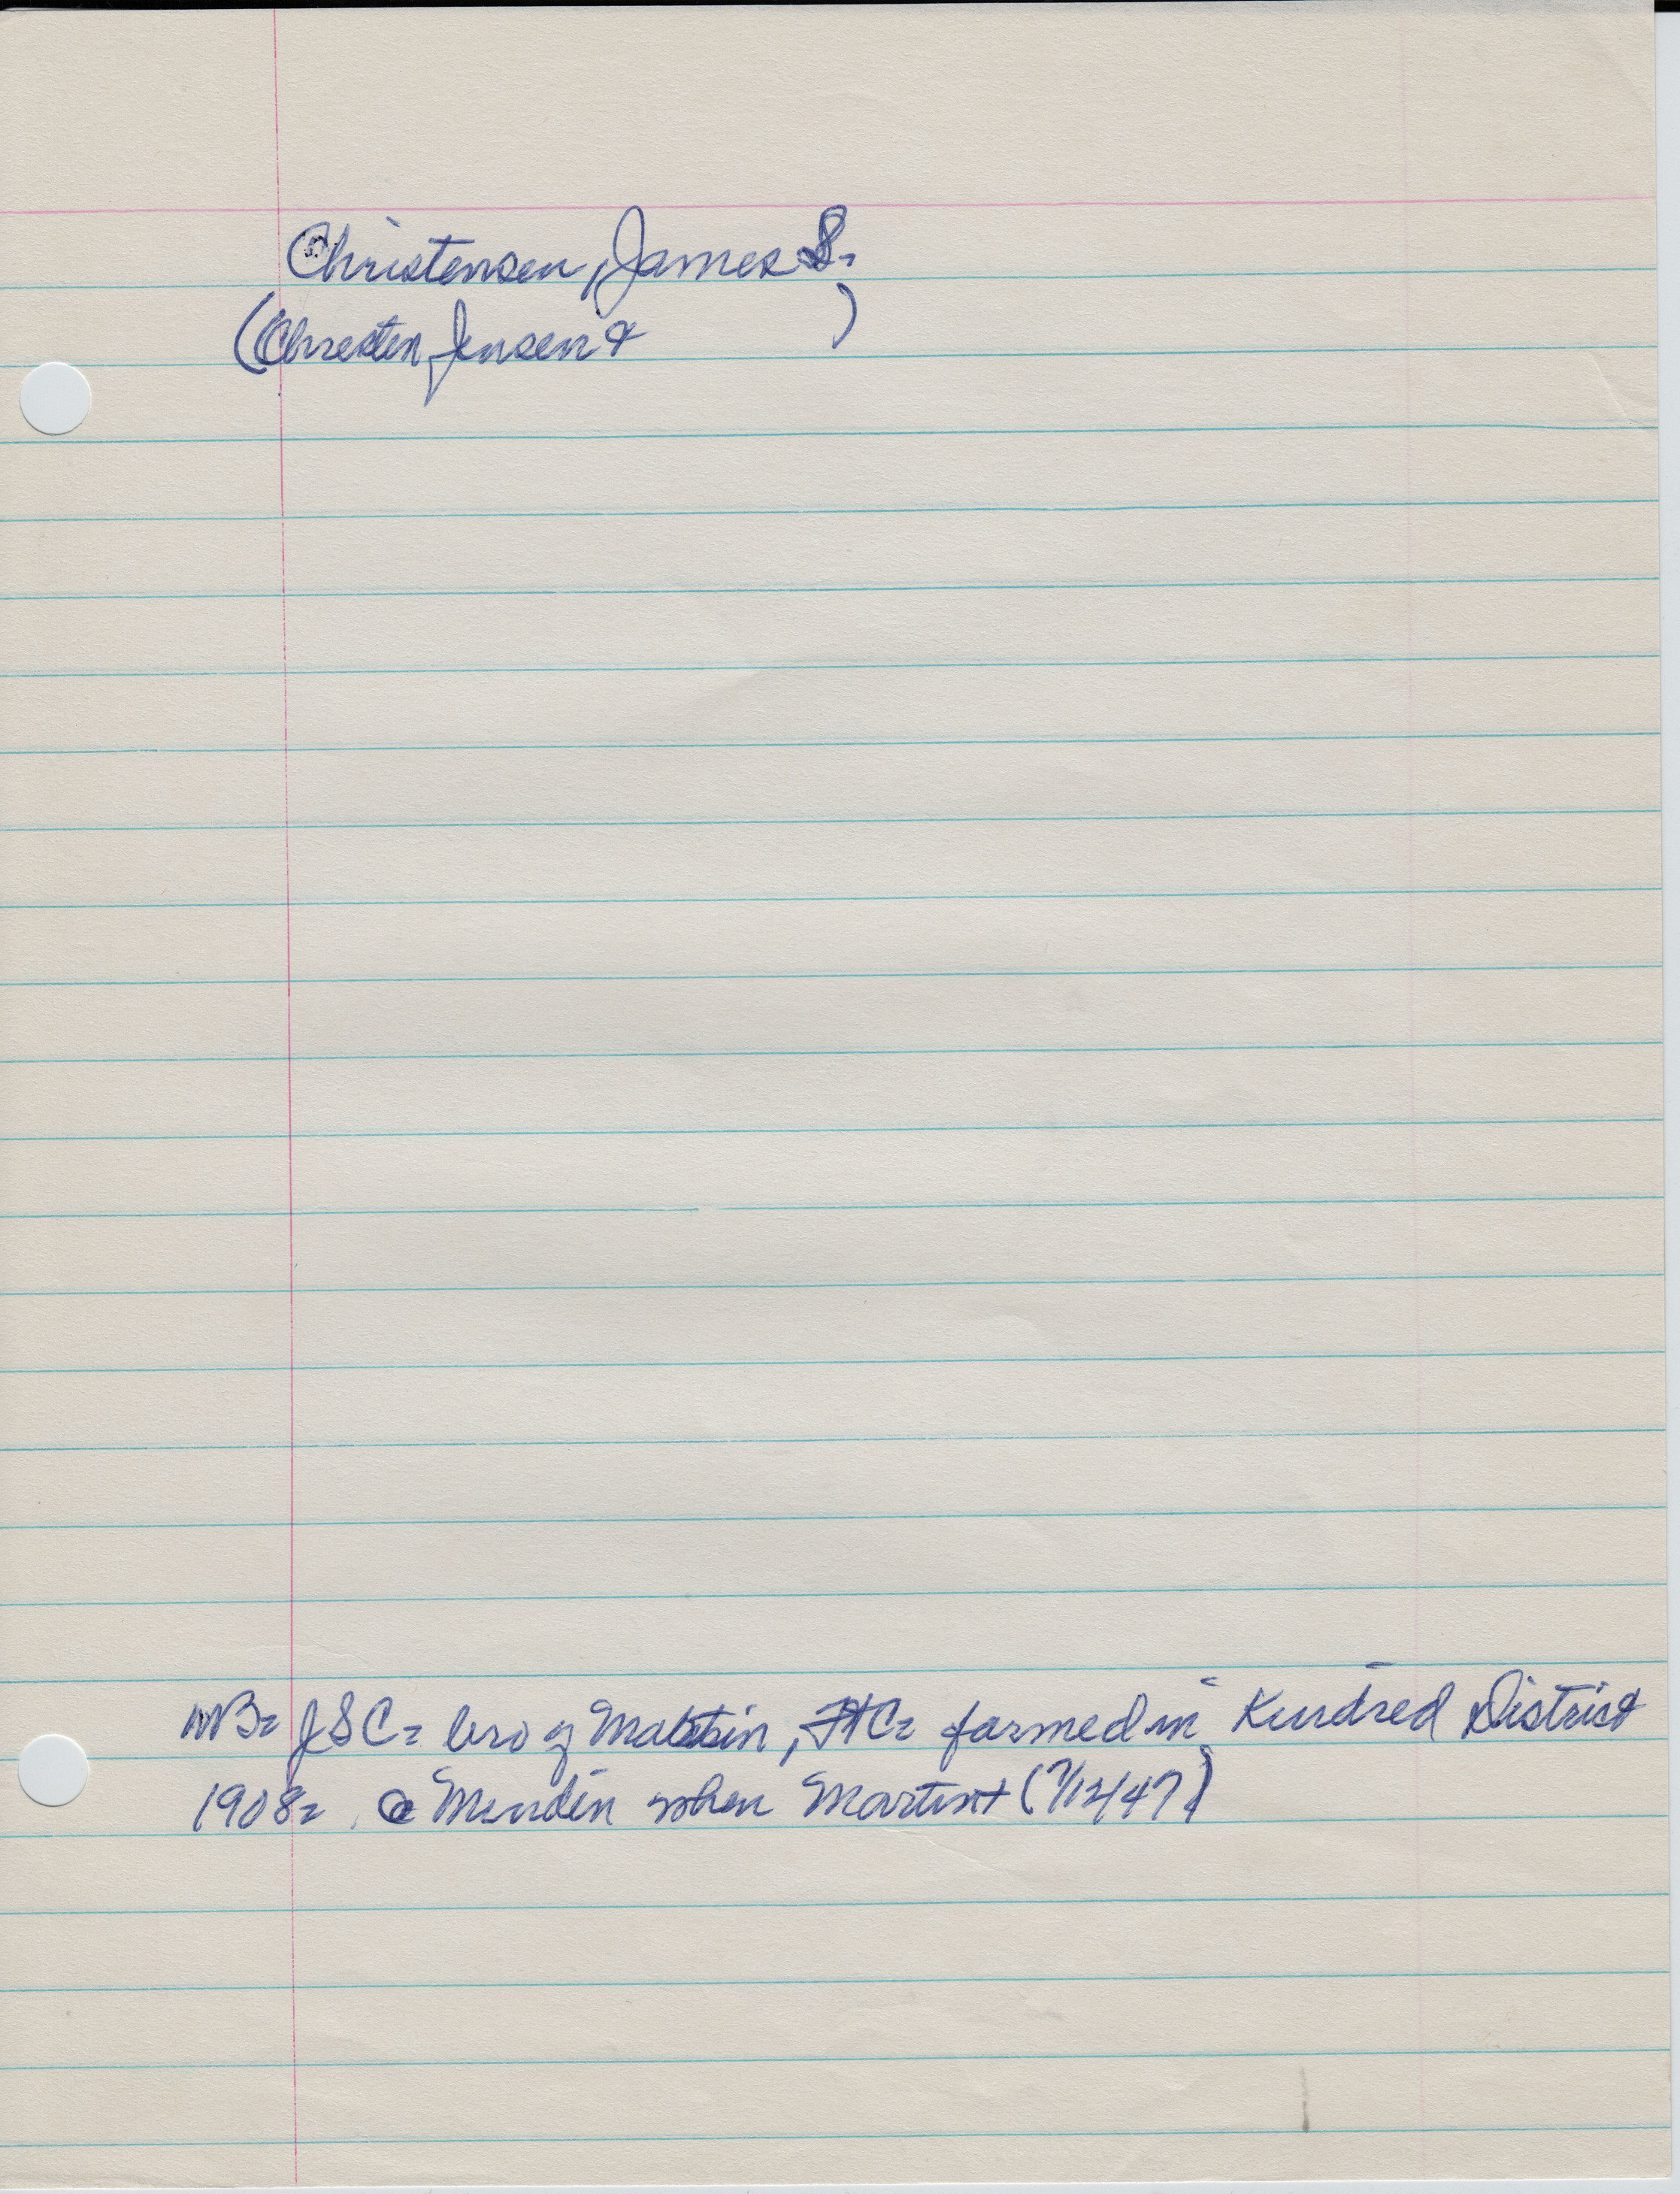 Christensen, James S.
(Chresten Jensen &          )
NB= JSC= bro of Martin, farmed in Kindred District
1908= @ Minden when Martin + (7/12/47)